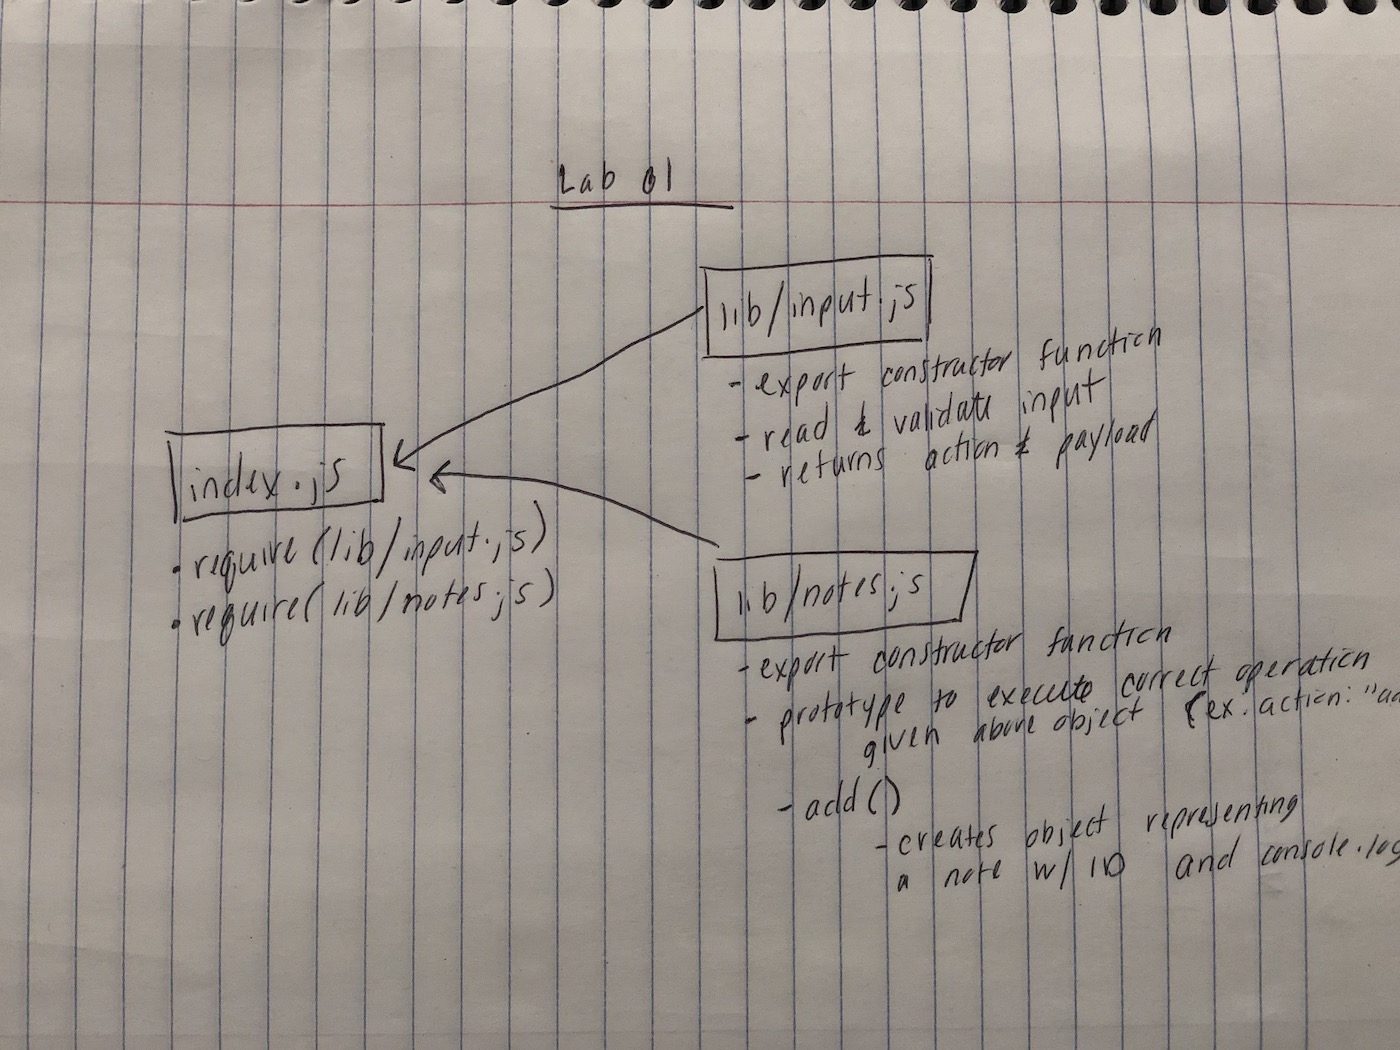 Lab 01
lib/input.js
- export constructor function
- read & validate input
- returns action & payload
index.js
• require(lib/input.js)
• require(lib/notes.js)
lib/notes.js
- export constructor function
- prototype to execute correct operation
given above object (ex. action: "ad
- add()
- creates object representing
a note w/ ID and console.log